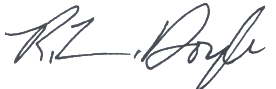 R.L. Doyle